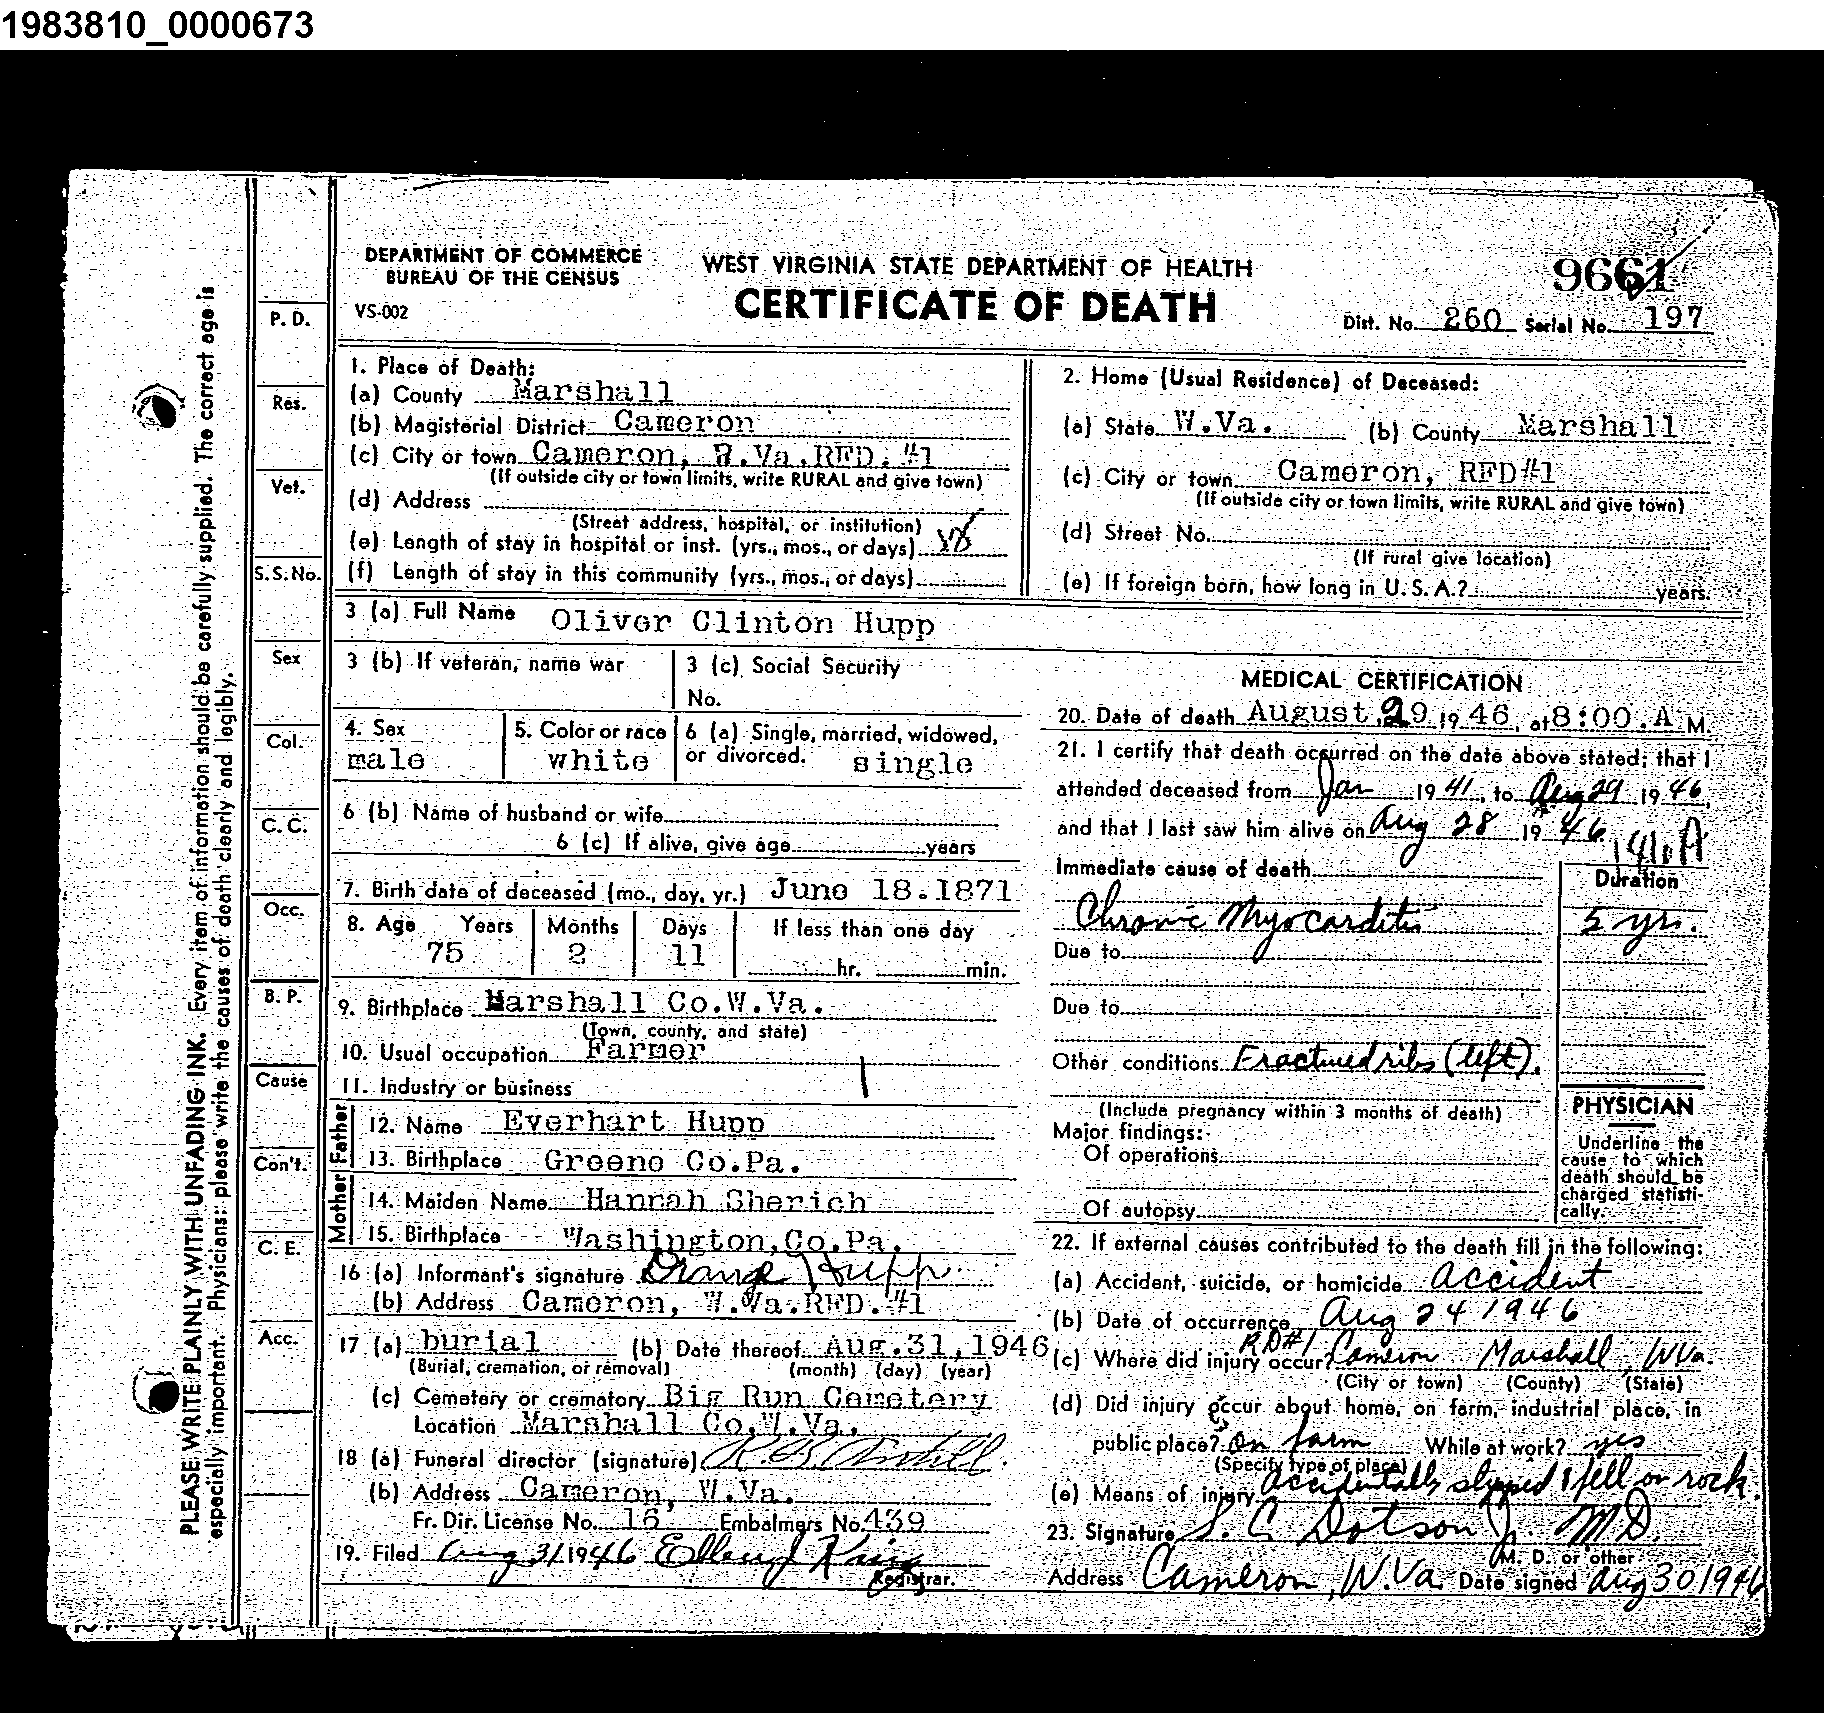 1983810_0000673
DEPARTMENT OF COMMERCE
BUREAU OF THE CENSUS
VS-002
WEST VIRGINIA STATE DEPARTMENT OF HEALTH
CERTIFICATE OF DEATH
9661
Dist. No. 260 Serial No. 197
PLEASE WRITE PLAINLY WITH UNFADING INK. Every item of information should be carefully supplied. The correct age is
especially important. Physicians: please write the causes of death clearly and legibly.
P. D.
Res.
Vet.
S. S. No.
Sex
Col.
C. C.
Occ.
B. P.
Cause
Con't.
C. E.
Acc.
1. Place of Death:
(a) County Marshall
(b) Magisterial District Cameron
(c) City or town Cameron, W.Va.RFD.#1
(If outside city or town limits, write RURAL and give town)
(d) Address
(Street address, hospital, or institution)
(e) Length of stay in hospital or inst. (yrs., mos., or days)
(f) Length of stay in this community (yrs., mos., or days)
2. Home (Usual Residence) of Deceased:
(a) State W.Va. (b) County Marshall
(c) City or town Cameron, RFD#1
(If outside city or town limits, write RURAL and give town)
(d) Street No.
(If rural give location)
(e) If foreign born, how long in U. S. A.? years.
3 (a) Full Name Oliver Clinton Hupp
3 (b) If veteran, name war
3 (c) Social Security
No.
4. Sex
male
5. Color or race
white
6 (a) Single, married, widowed,
or divorced. single
6 (b) Name of husband or wife
6 (c) If alive, give age years
7. Birth date of deceased (mo., day, yr.) June 18.1871
8. Age Years Months Days If less than one day
75 2 11 hr. min.
9. Birthplace Marshall Co.W.Va.
(Town, county, and state)
10. Usual occupation Farmer
11. Industry or business
Father
12. Name Everhart Hupp
13. Birthplace Greene Co.Pa.
Mother
14. Maiden Name Hannah Sherich
15. Birthplace Washington,Co.Pa.
16 (a) Informant's signature Orange Hupp
(b) Address Cameron, W.Va.RFD.#1
17 (a) burial (b) Date thereof Aug.31,1946
(Burial, cremation, or removal) (month) (day) (year)
(c) Cemetery or crematory Big Run Cemetery
Location Marshall Co.W.Va.
18 (a) Funeral director (signature)
(b) Address Cameron, W.Va.
Fr. Dir. License No. 16 Embalmers No. 439
19. Filed Aug 31 1946
Registrar.
MEDICAL CERTIFICATION
20. Date of death August 29 1946, at 8:00.A M.
21. I certify that death occurred on the date above stated; that I
attended deceased from Jan 1941, to Aug 29 1946,
and that I last saw him alive on Aug 28 1946
Immediate cause of death
Duration
Chronic Myocarditis 5 yrs.
Due to
Due to
Other conditions Fractured ribs (left).
(Include pregnancy within 3 months of death)
Major findings:
Of operations
Of autopsy
PHYSICIAN
Underline the
cause to which
death should be
charged statisti-
cally.
22. If external causes contributed to the death fill in the following:
(a) Accident, suicide, or homicide accident
(b) Date of occurrence Aug 24 1946
RD#1
(c) Where did injury occur? Cameron Marshall W.Va.
(City or town) (County) (State)
(d) Did injury occur about home, on farm, industrial place, in
public place? on farm While at work? yes
(Specify type of place)
(e) Means of injury accidentally slipped & fell on rock.
23. Signature S. C. Dotson Jr. MD.
M. D. or other
Address Cameron, W.Va. Date signed Aug 30 1946